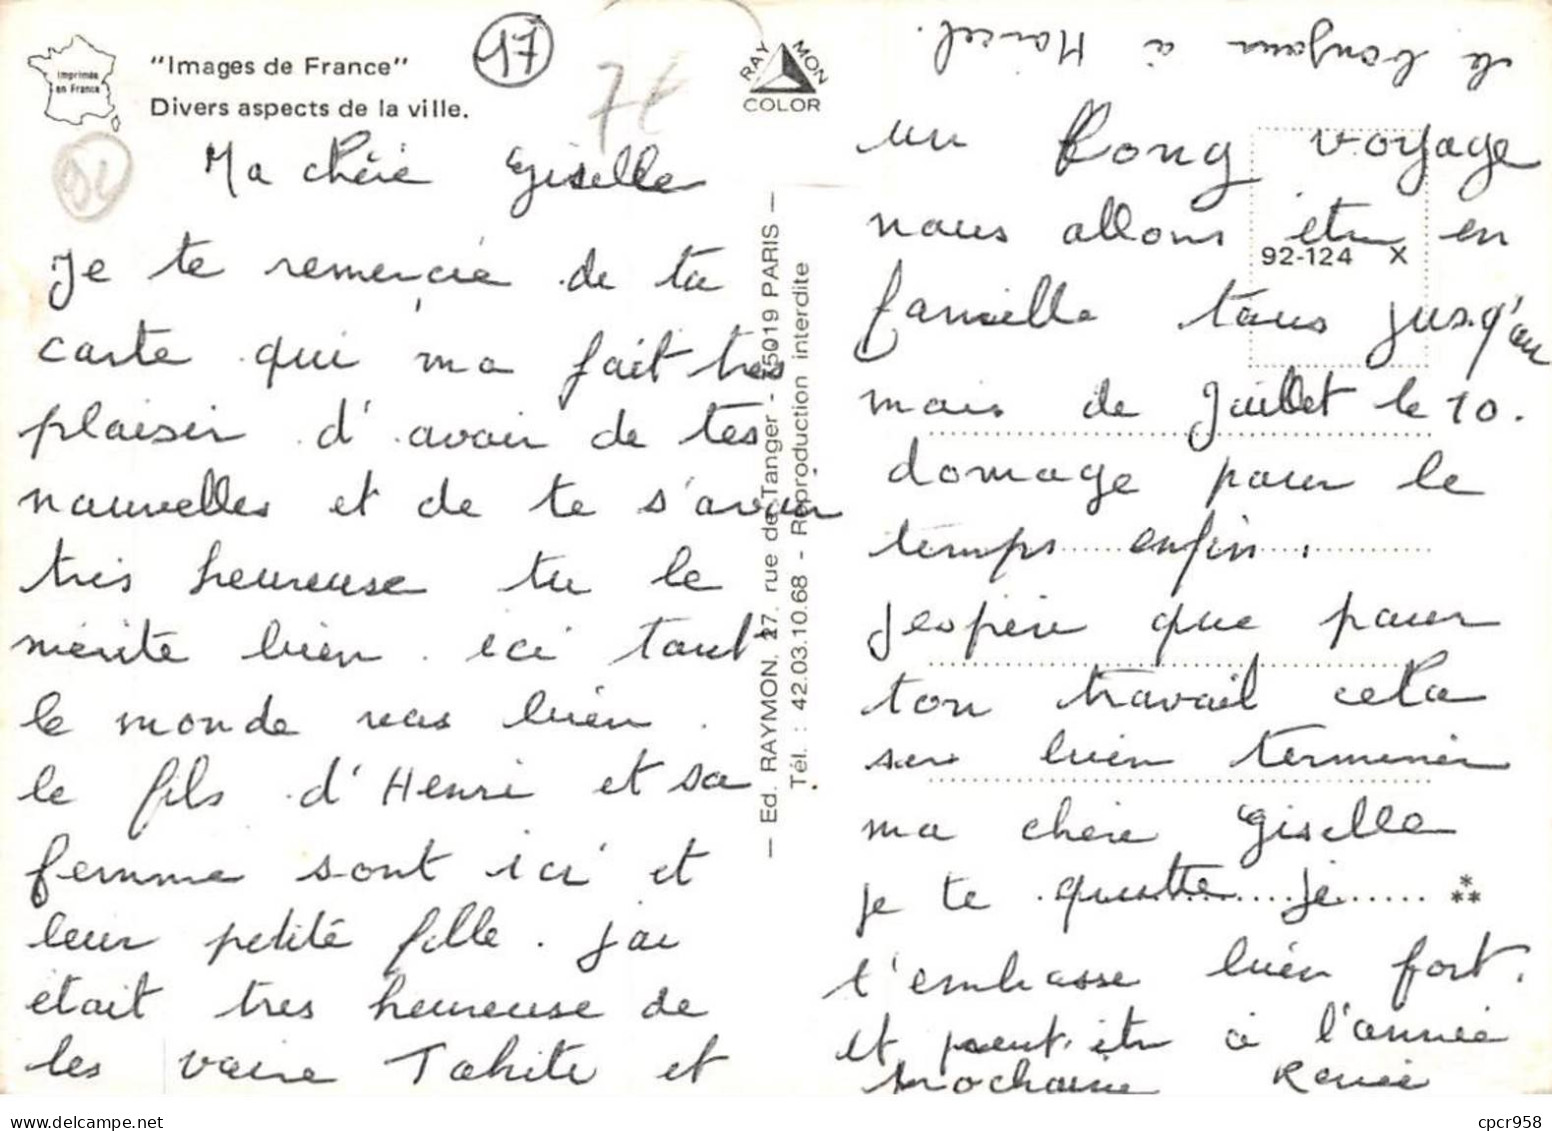 Imprimée
en France
"Images de France"
Divers aspects de la ville.
17
RAYMON
COLOR
Ma chérie Giselle
Je te remercie de ta
carte qui m'a fait très
plaisir d'avoir de tes
nouvelles et de te s'avoir
très heureuse tu le
mérite bien. ici tout
le monde vas bien.
le fils d'Henri et sa
femme sont ici et
leur petite fille. j'ai
était très heureuse de
les voire Tahiti et
— Ed. RAYMON, 27, rue de Tanger - 75019 PARIS —
Tél. : 42.03.10.68 - Reproduction interdite
le bonjour à Marcel.
un long voyage
nous allons être en
famille tous jusq'au
mois de Juillet le 10.
92-124 X
domage pour le
temps enfin.
J'espère que pour
ton travail cela
sera bien terminer
ma chère Giselle
je te quitte je
t'embrasse bien fort.
et peut-être à l'année
prochaine Renée
cpcr958